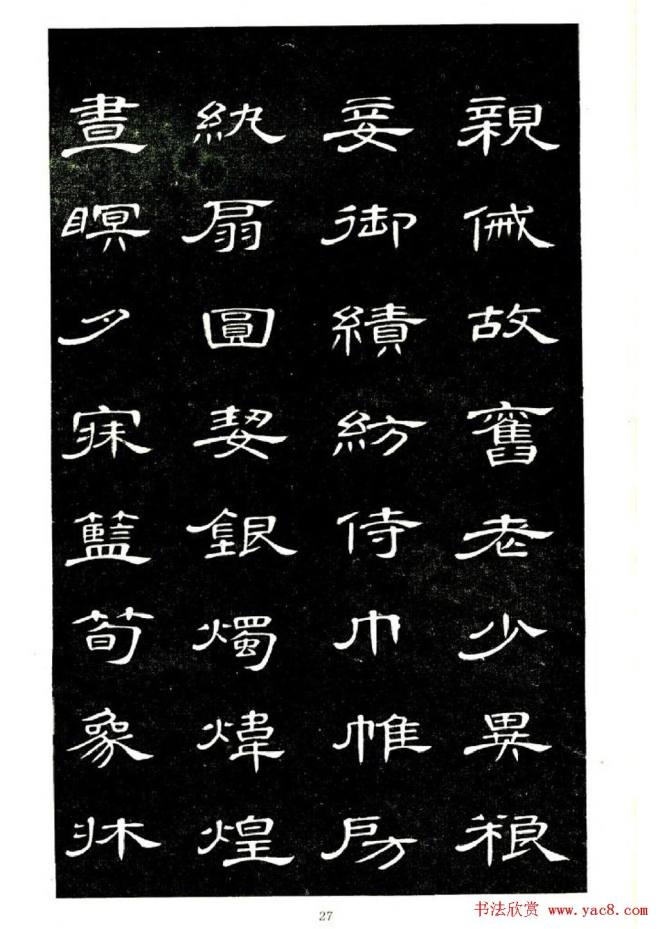 親戚故舊老少異粮
妾御績紡侍巾帷房
紈扇圓絜銀燭煒煌
晝瞑夕寐藍荀象牀
27
书法欣赏 www.yac8.com